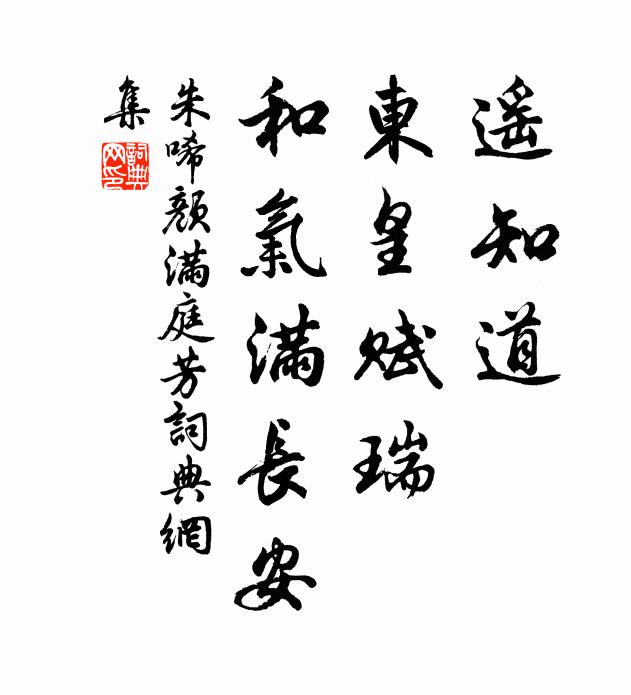 遥知道
東皇賦瑞
和氣滿長安
朱晞顏滿庭芳詞典網
集
詞典網印